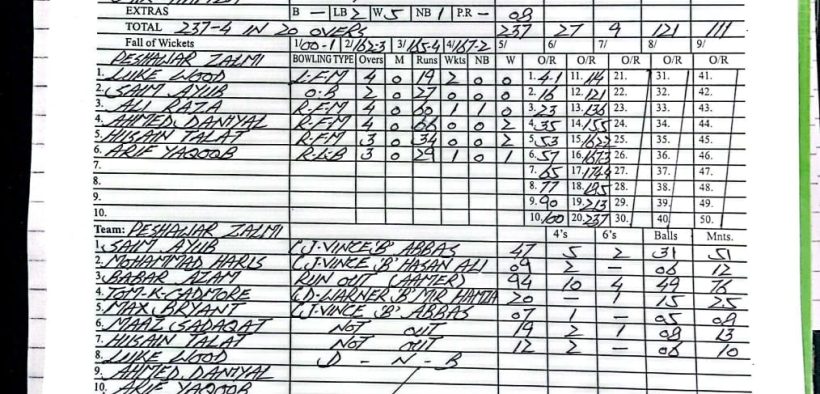 EXTRAS B — LB 2 W 5 NB 1 P.R — 08
TOTAL 237-4 IN 20 OVERS 237 27 9 121 111
Fall of Wickets 1/100-1 2/162-3 3/165-4 4/167-2 5/ 6/ 7/ 8/ 9/
PESHAWAR ZALMI BOWLING TYPE Overs M Runs Wkts NB W O/R O/R O/R O/R O/R
1. LUKE WOOD L.F.M 4 0 19 2 0 0 1. 4-1 11. 114 21. 31. 41.
2. SAIM AYUB O.B 2 0 27 0 0 0 2. 16 12. 121 22. 32. 42.
3. ALI RAZA R.F.M 4 0 60 1 1 0 3. 23 13. 136 23. 33. 43.
4. AHMED DANIYAL R.F.M 4 0 66 0 0 2 4. 35 14. 155 24. 34. 44.
5. HUSAIN TALAT R.F.M 3 0 34 0 0 2 5. 53 15. 162-2 25. 35. 45.
6. ARIF YAQOOB R.L.B 3 0 29 1 0 1 6. 57 16. 167-3 26. 36. 46.
7. 7. 65 17. 174-4 27. 37. 47.
8. 8. 77 18. 195 28. 38. 48.
9. 9. 90 19. 213 29. 39. 49.
10. 10. 100 20. 237 30. 40. 50.
Team: PESHAWAR ZALMI 4's 6's Balls Mnts.
1. SAIM AYUB C J.VINCE 'B' ABBAS 47 5 2 31 51
2. MOHAMMAD HARIS C J.VINCE 'B' HASAN ALI 09 2 — 06 12
3. BABAR AZAM RUN OUT (AAMER) 94 10 4 49 76
4. TOM-K-CADMORE C D.WARNER 'B' MIR HAMZA 20 — 1 15 25
5. MAX BRYANT C J.VINCE 'B' ABBAS 07 1 — 05 09
6. MAAZ SADAQAT NOT OUT 19 2 1 09 13
7. HUSAIN TALAT NOT OUT 12 2 — 06 10
8. LUKE WOOD D - N - B
9. AHMED DANIYAL
10. ARIF YAQOOB